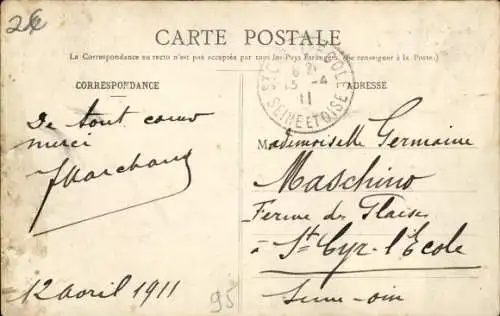 2€
CARTE POSTALE
La Correspondance au recto n'est pas acceptée par tous les Pays Étrangers. (Se renseigner à la Poste.)
CORRESPONDANCE
ADRESSE
De tout cœur
merci
J Marchand
12 avril 1911
95
SEINE ET OISE
15 -4
11
Mademoiselle Germaine
Maschino
Ferme des
à St Cyr-l'École
Seine-oise